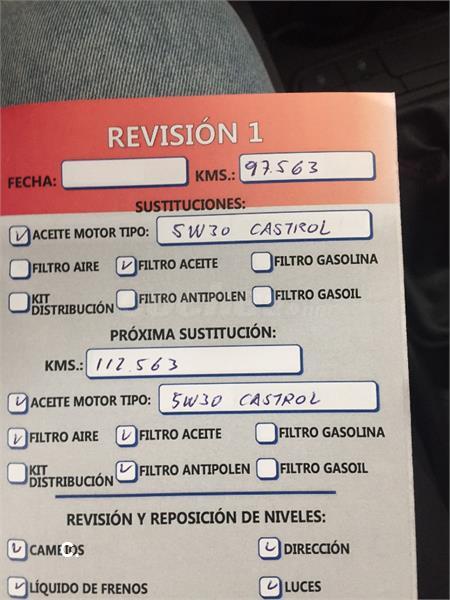 REVISIÓN 1
FECHA: KMS.: 97.563
SUSTITUCIONES:
ACEITE MOTOR TIPO: 5W30 CASTROL
FILTRO AIRE FILTRO ACEITE FILTRO GASOLINA
KIT DISTRIBUCIÓN FILTRO ANTIPOLEN FILTRO GASOIL
PRÓXIMA SUSTITUCIÓN:
KMS.: 112.563
ACEITE MOTOR TIPO: 5W30 CASTROL
FILTRO AIRE FILTRO ACEITE FILTRO GASOLINA
KIT DISTRIBUCIÓN FILTRO ANTIPOLEN FILTRO GASOIL
REVISIÓN Y REPOSICIÓN DE NIVELES:
DIRECCIÓN
LÍQUIDO DE FRENOS LUCES